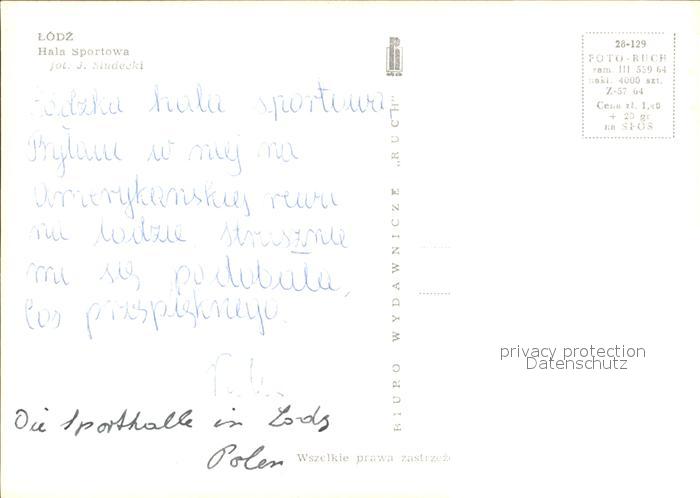 ŁÓDŹ
Hala Sportowa
fot. J. Siudecki
Łódzka hala sportowa,
Byłam w niej na
amerykańskiej rewii
na lodzie, strasznie
mi się podobała,
Coś przepięknego.
Die Sporthalle in Lodz
Polen
BIURO WYDAWNICZE „RUCH"
Wszelkie prawa zastrzeż
28-129
FOTO-RUCH
zam. III 559 64
nakł. 4000 szt.
Z-57 64
Cena zł. 1,40
+ 20 gr
na SFOS
privacy protection
Datenschutz